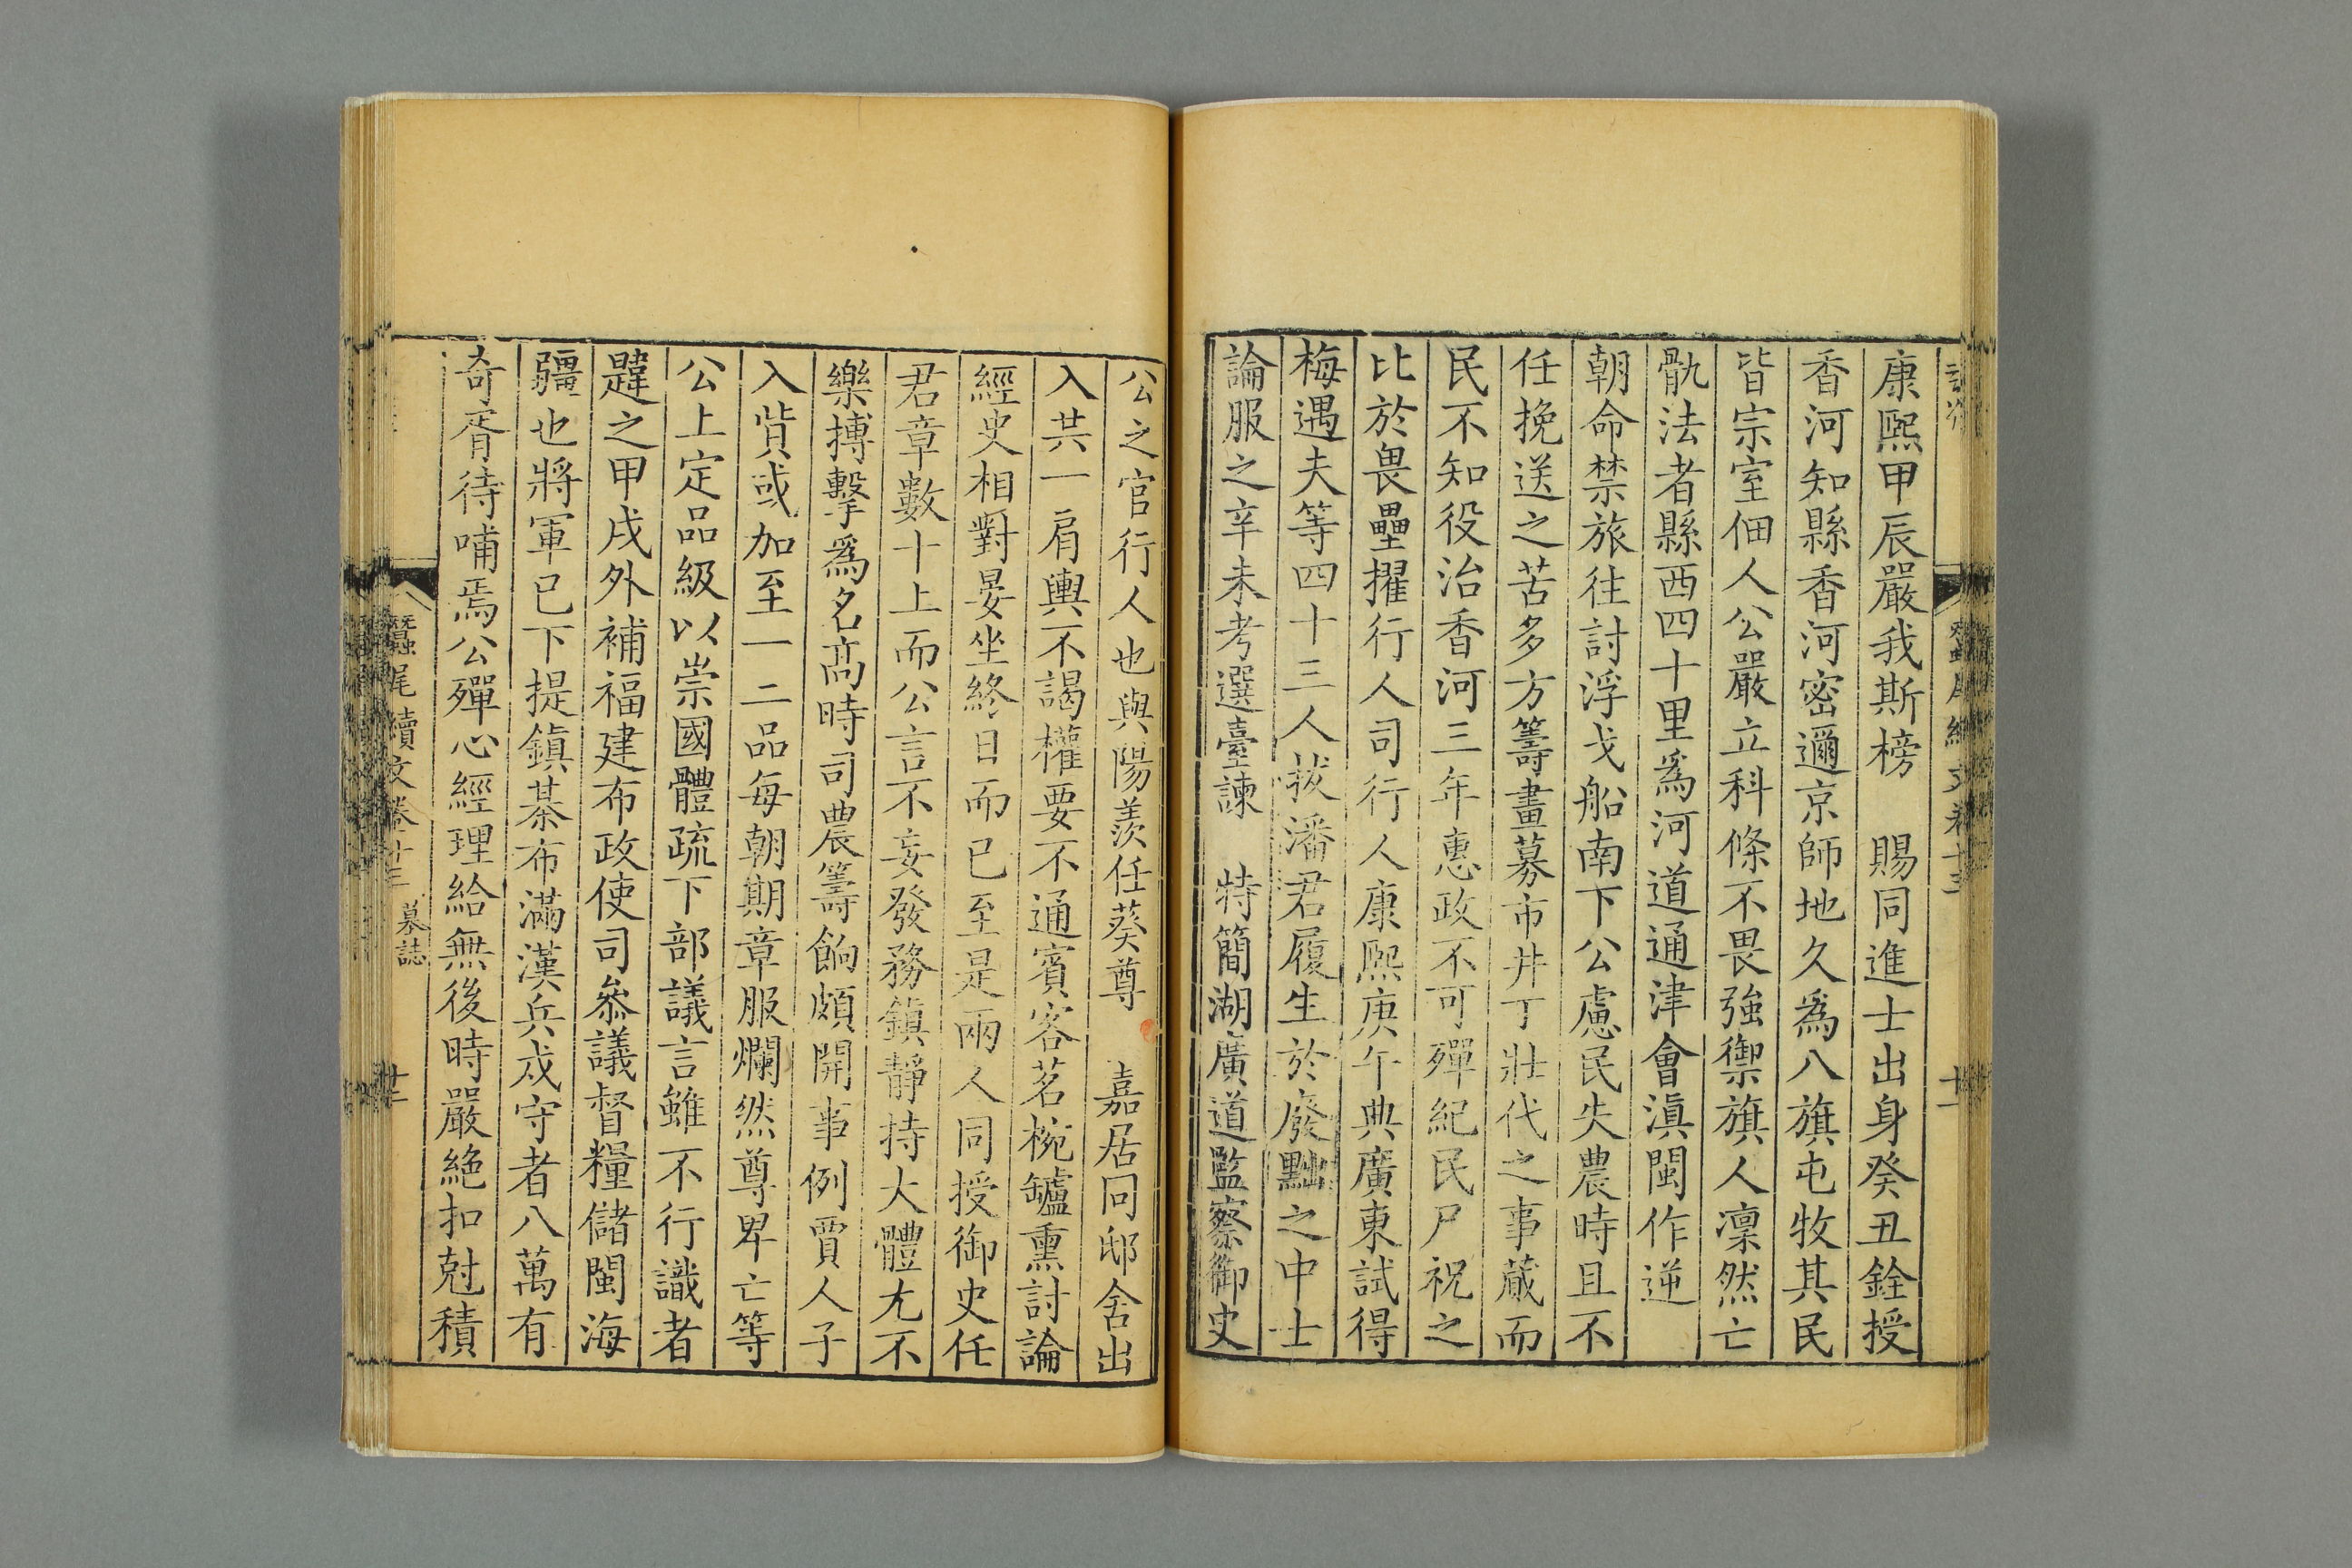 康熙甲辰嚴我斯榜　賜同進士出身癸丑銓授
香河知縣香河密邇京師地久爲八旗屯牧其民
皆宗室佃人公嚴立科條不畏強禦旗人凜然亡
骩法者縣西四十里爲河道通津會滇閩作逆
朝命禁旅往討浮戈船南下公慮民失農時且不
任挽送之苦多方籌畫募市井丁壯代之事蕆而
民不知役治香河三年惠政不可殫紀民尸祝之
比於畏壘擢行人司行人康熙庚午典廣東試得
梅遇夫等四十三人拔潘君履生於廢黜之中士
論服之辛未考選臺諫　特簡湖廣道監察御史
公之官行人也與陽羨任葵尊　嘉居同邸舍出
入共一肩輿不謁權要不通賓客茗椀罏熏討論
經史相對晏坐終日而已至是兩人同授御史任
君章數十上而公言不妄發務鎮靜持大體尢不
樂搏擊爲名高時司農籌餉頗開事例賈人子
入貲或加至一二品每朝期章服爛然尊卑亡等
公上定品級以崇國體疏下部議言雖不行識者
韙之甲戌外補福建布政使司叅議督糧儲閩海
疆也將軍已下提鎮棊布滿漢兵戍守者八萬有
奇胥待哺焉公殫心經理給無後時嚴絕扣尅積
蠶尾續文卷十三
墓誌